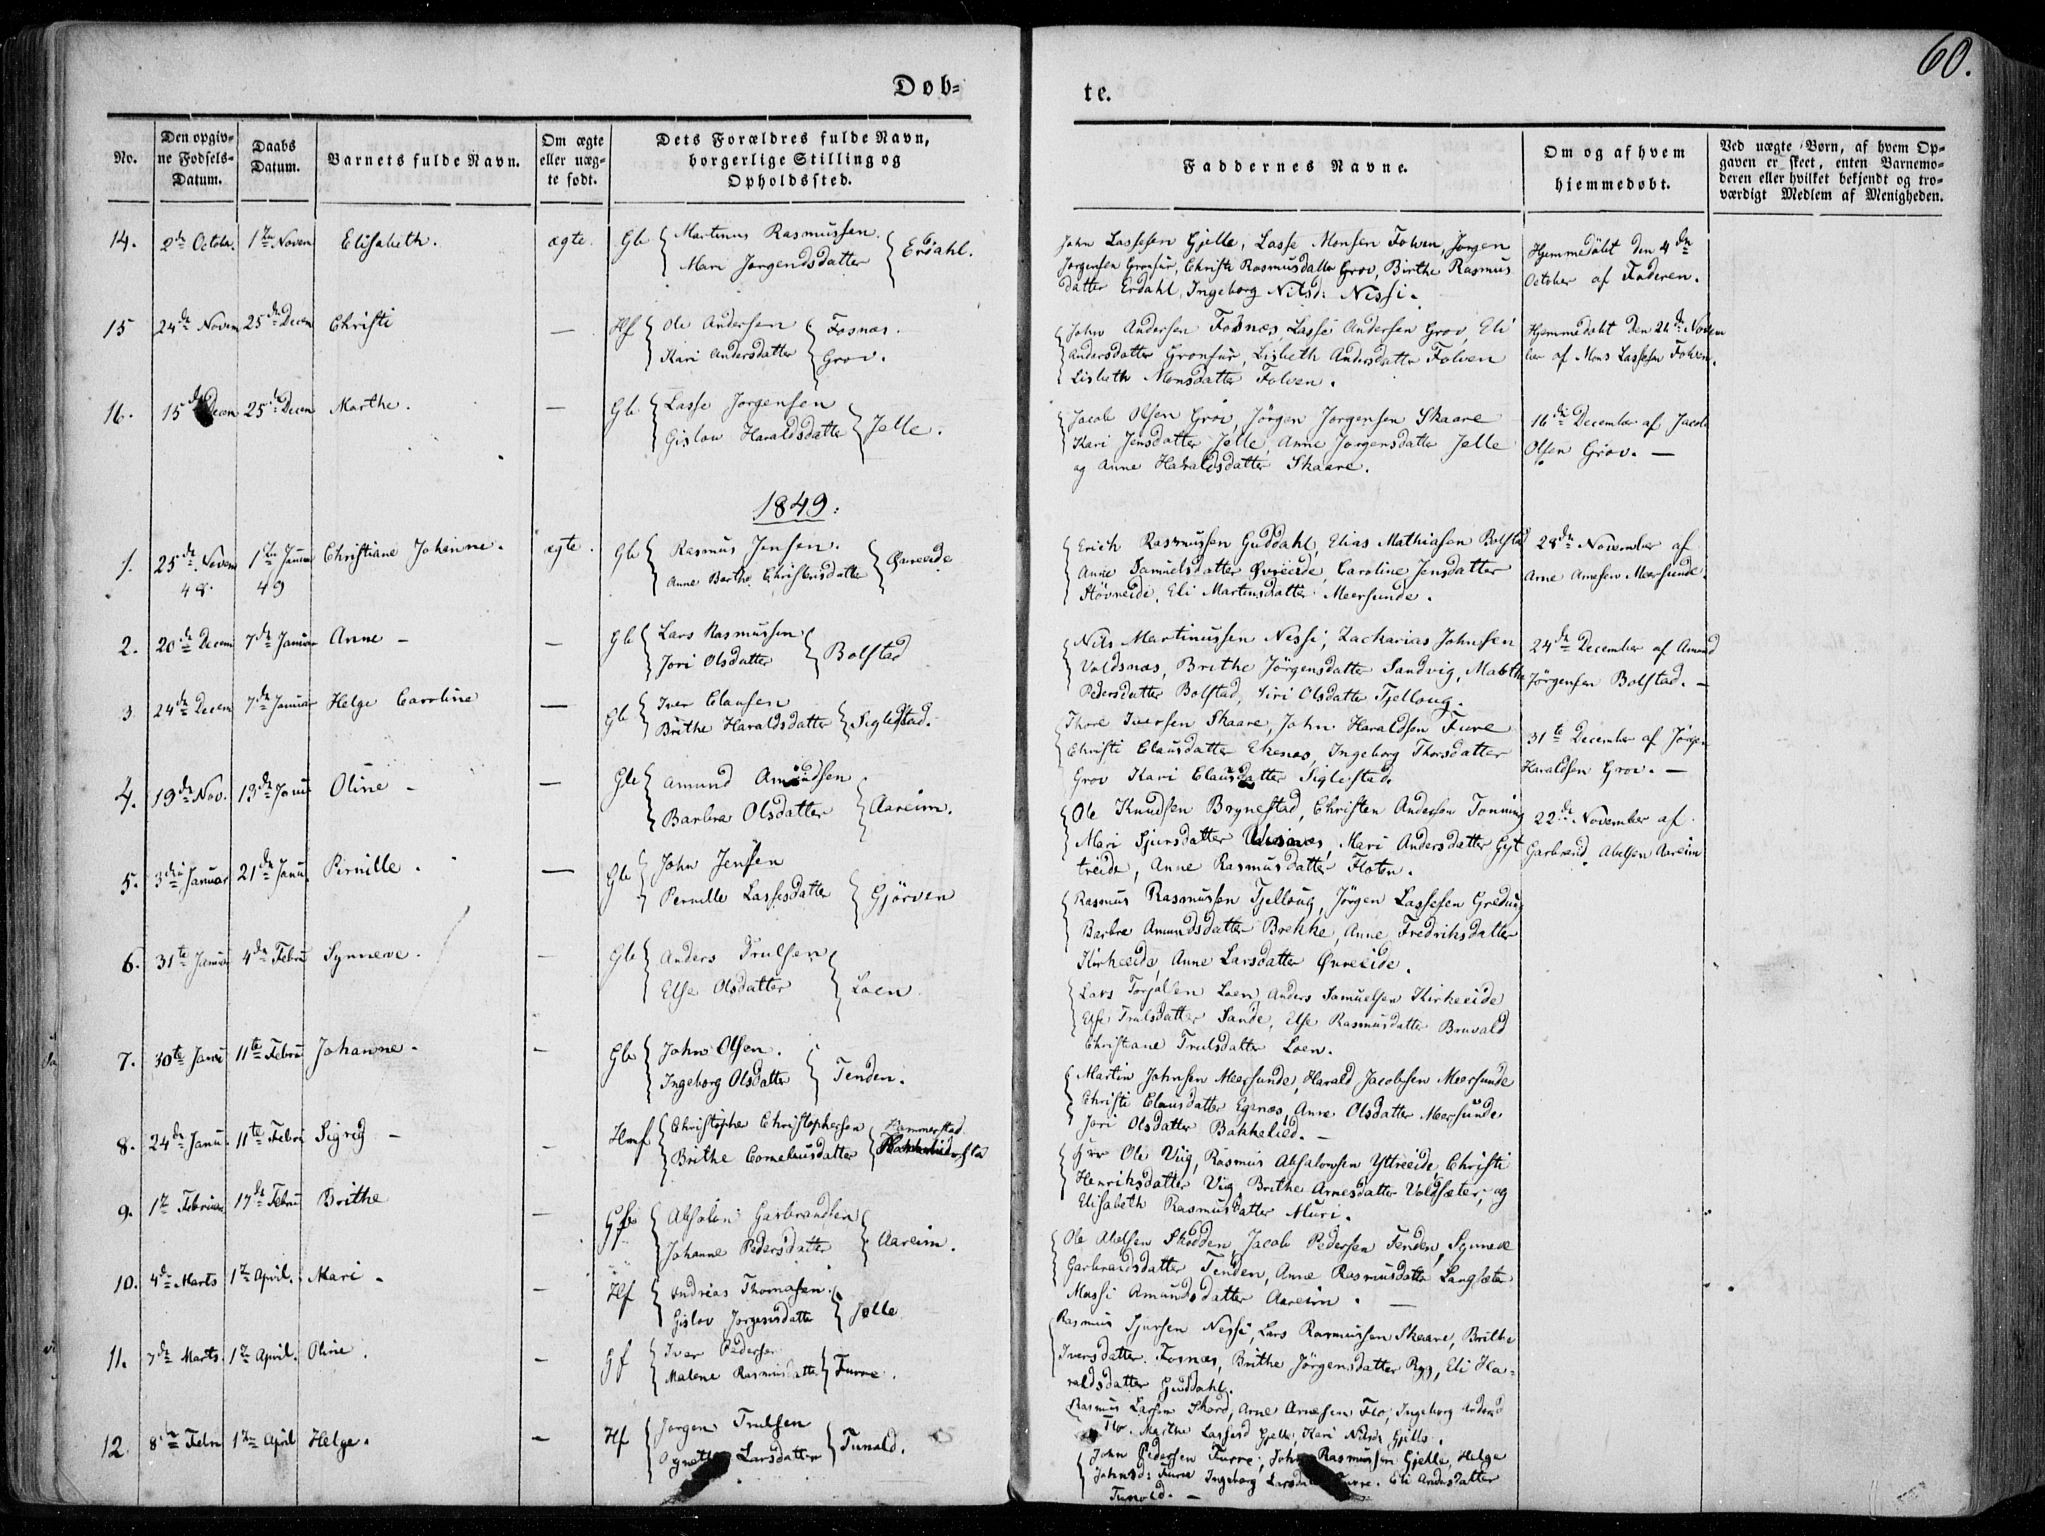 60.
Døb=
te.
No.
Den opgiv=
ne Fødsels=
Datum.
Daabs
Datum.
Barnets fulde Navn.
Om ægte
eller uæg=
te født.
Dets Forældres fulde Navn,
borgerlige Stilling og
Opholdssted.
Faddernes Navne.
Om og af hvem
hjemmedøbt.
Ved uægte Børn, af hvem Op=
gaven er skeet, enten Barnemo=
deren eller hvilket bekjendt og tro=
værdigt Medlem af Menigheden.
14. 2de Octobr. 1ste Noven Elisabeth. ægte. Gb Martinus Rasmussen
Mari Jørgensdatter Erdahl.
John Lassesen Gjelle, Lasse Monsen Folven, Jørgen
Jørgensen Gronfur, Christi Rasmusdatter Grov, Birthe Rasmus
datter Erdahl, Ingeborg Nilsd: Nessi.
Hjemmedøbt den 4de
October af Faderen.
15 24de Novem 25de Decem Christi — Hf Ole Andersen Fosnæs.
Kari Andersdatter Grov.
John Andersen Fosnæs, Lasse Andersen Grov, Eli
Andersdatter Gronfur, Lisbeth Andersdatter Folven
Lisbeth Monsdatter Folven.
Hjemmedøbt den 26de Novem
ber af Mons Lassesen Folven.
16. 15de Decem 25de Decem Marthe. — Gb Lasse Jørgensen
Gislou Haraldsdatter Jelle.
Jacob Olsen Grov, Jørgen Jørgensen Skaare
Kari Jensdatter Jelle, Anne Jørgensdatter Jelle
og Anne Haraldsdatter Skaare.
16de December af Jacob
Olsen Grov. —
1849.
1. 25de Novem 1ste Januar Christiane Johanne. ægte. Gb Rasmus Jensen.
48. 49 Anne Barthe Christensdatter Øvreeide
Erich Rasmussen Guddahl, Elias Mathiasen Bolstad
Anne Samuelsdatter Øvreeide, Caroline Jensdatter
Støvreide, Eli Martinsdatter Meersunde.
28de November af
Arne Arnesen Meersunde.
2. 20de Decem 7de Januar Anne — — Gb Lars Rasmussen
Jori Olsdatter Bolstad
Nils Martinussen Nessi, Zacharias Johnsen
Voldsnæs, Brithe Jørgensdatter Sandvig, Marthe
Pedersdatter Bolstad, Siri Olsdatter Tjelloug.
24de December af Amund
Jørgensen Bolstad. —
3 24de Decem 7de Januar Helge Caroline — Gb Iver Clausen
Brithe Haraldsdatter Siglestad.
Thore Iversen Skaare, John Haraldsen Fure
Christi Clausdatter Ekenæs, Ingeborg Thorsdatter
Grov Kari Clausdatter Siglestad.
31te December af Jørgen
Haraldsen Grov. —
4. 19de Nov. 13de Janu Oline — — Gb Amund Amundsen
Barbra Olsdatter Aareim.
Ole Knudsen Brynestad, Christen Andersen Tonning
Mari Sjursdatter, Mari Andersdatter Gyt
treide, Anne Rasmusdatter Floten.
22de November af
Garbrand Abelsen Aareim
5. 3die Januar 21de Janu. Pernille. — Gb John Jensen
Pernille Lassesdatter Gjørven
Rasmus Rasmussen Tjelloug, Jørgen Lassesen Greduig
Barbra Amundsdatter Brekke, Anne Fredriksdatter
Kirkeeide, Anne Larsdatter Øvreeide.
6. 31te Janua 4de Febru Synneve. — Gb Anders Trulsen
Else Olsdatter Loen.
Lars Torjølsen Loen, Anders Samuelsen Kirkeeide
Else Trulsdatter Sande, Else Rasmusdatter Bruvald
Christiane Trulsdatter Loen.
7. 30te Janu 11te Febru Johanne. — Gb John Olsen.
Ingeborg Olsdatter Tenden.
Martin Johnsen Meersunde, Harald Jacobsen Meersunde
Christi Clausdatter Egenæs, Anne Olsdatter Meersunde
Jori Olsdatter Bakkelied. —
8. 24de Janu. 11te Febru Sigrid — — Hmf Christopher Christophersen Hammerstad
Brithe Corneliusdatter
Herr Ole Viig, Rasmus Absalonsen Yttreeide, Christi
Henriksdatter Viig, Brithe Arnesdatter Voldsæter, og
Elisabeth Rasmusdatter Muri.
9. 1te Februar 17de Febru Brithe — Gf Absalon Garbrandsen
Johanne Pedersdatter Aareim.
Ole Abelsen Skødden, Jacob Pedersen Tenden, Synneve
Garbrandsdatter Tenden, Anne Rasmusdatter Langsæter
Massi Amundsdatter Aareim. —
10. 4de Marts 1te April. Mari. — Hf Andreas Thomasen
Gislov Jørgensdatter Jelle
Rasmus Sjursen Nessi, Lars Rasmussen Skaare, Brithe
Iversdatter Fosnæs, Brithe Jørgensdatter Ryg, Eli Ha-
raldsdatter Guddahl.
11. 7de Marts. 1te April. Oline. — Gf Iver Pedersen
Malene Rasmusdatter Furre.
Rasmus Larsen Skord, Arne Arnesen Flo, Ingeborg Andersd
Flo. Marthe Lassesd Gjelle, Kari Nilsd: Gjelle.
12. 8de Febr 1te April Helge. — Hf Jørgen Trulsen
Larsdatter Tunold.
John Pedersen Furre, John Rasmussen Gjelle, Helge
Johnsd: Furre Ingeborg Larsdatter Furre. Eli Andersdatter
Tunold. —